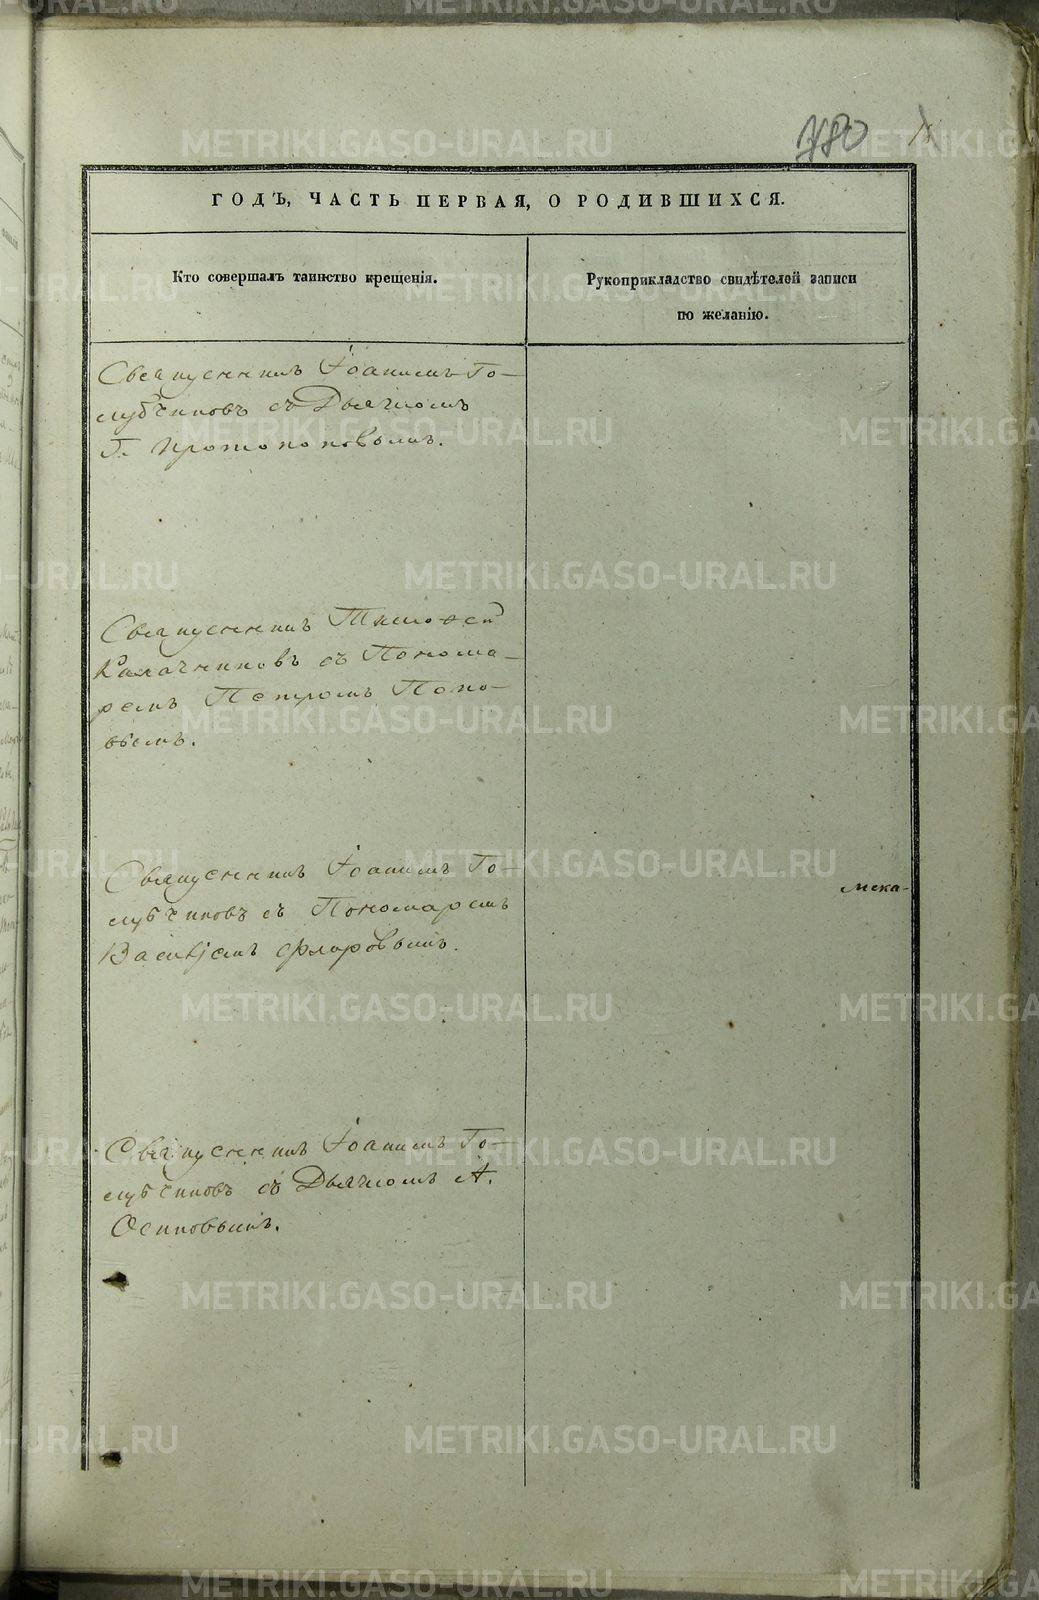 780
ГОДЪ, ЧАСТЬ ПЕРВАЯ, О РОДИВШИХСЯ.
Кто совершалъ таинство крещенія.
Рукоприкладство свидѣтелей записи
по желанію.
Священникъ Іоаннъ Го-
лубчиковъ съ Дьячкомъ
Г. Протопоповымъ.
Священникъ Тимофей
Калачниковъ съ Понома-
ремъ Петромъ Попо-
вымъ.
Священникъ Іоаннъ Го-
лубчиковъ съ Пономаремъ
Василіемъ Флоровымъ.
мска-
Священникъ Іоаннъ Го-
лубчиковъ съ Дьячкомъ А.
Осиповымъ.
METRIKI.GASO-URAL.RU